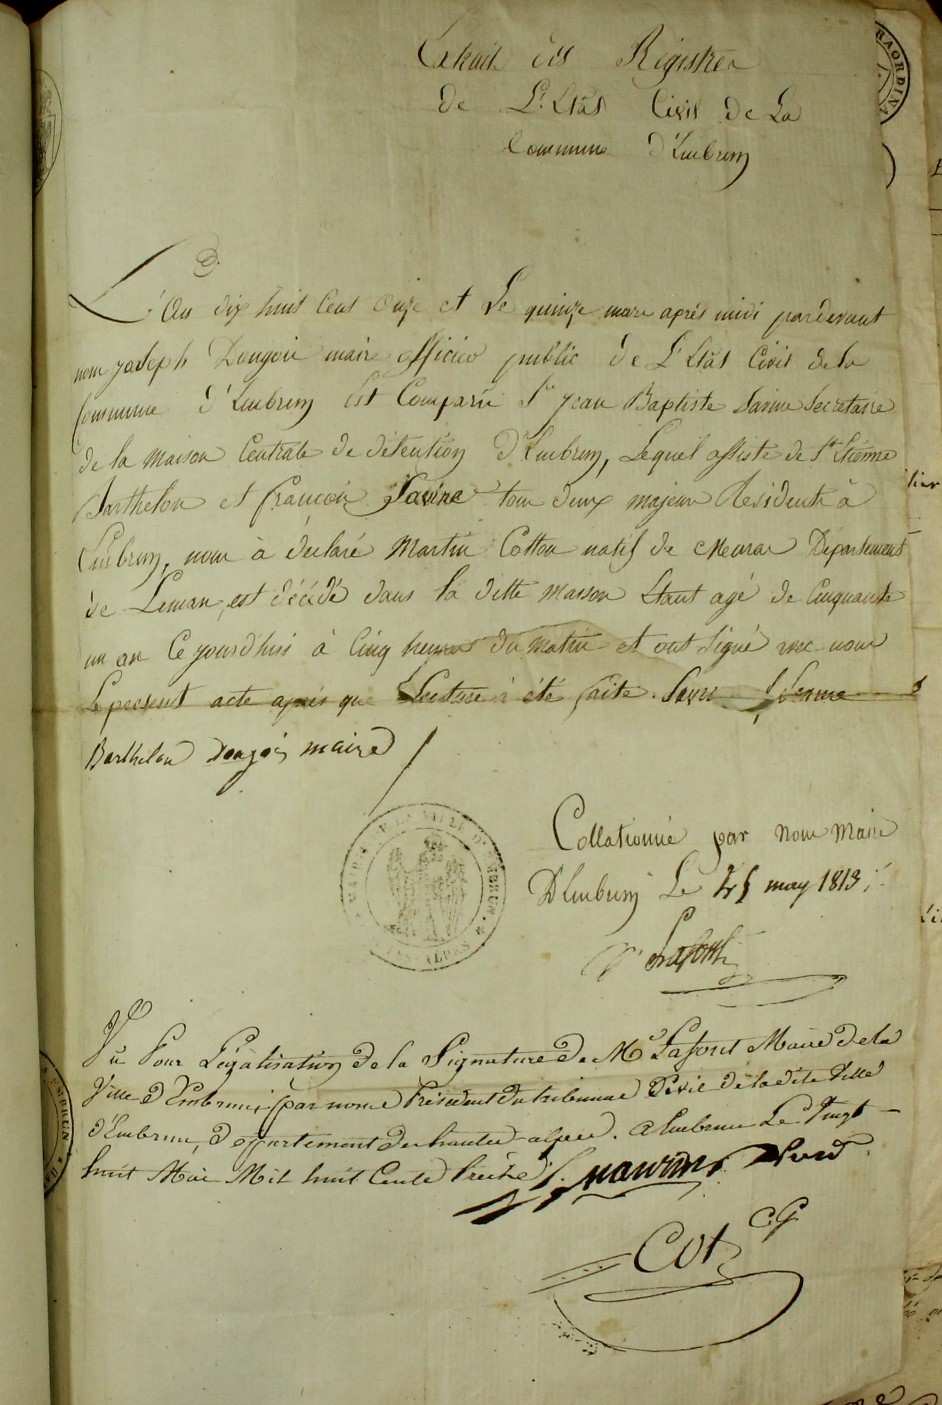 Extrait des Registres
de L'Etat Civil de La
Commune d'Embrun
L'An dix huit Cent Onze et Le quinze mars après midi pardevant
nous joseph Dongois maire officier public de L'Etat Civil de la
Commune d'Embrun Est Comparu Sr jean Baptiste Savine Secretaire
de la maison Centrale de détention d'Embrun, Lequel assisté de Sr Etienne
Barthelon et françois Savine tous deux majeurs Résidents à
Embrun, nous à déclaré Martin Cotton natif de Département
de Leman, est décédé dans la ditte maison Etant agé de Cinquante
un an Ce jourd'hui à Cinq heures du matin et ont signé avec nous
Le present acte après que Lecture à été faite.
Barthelon Dongois maire
Collationné par nous Maire
D'Embrun Le may 1813
Lafont
MAIRIE DE LA VILLE D'EMBRUN
ALPES
Vu Pour Légalisation de la Signature de Mr Lafont Maire de la
Ville d'Embrun, par nous Président du tribunal Civil de la dite Ville
d'Embrun, département des hautes-alpes. a Embrun Le Vingt-
huit Mai Mil huit Cents treize
Cot CG